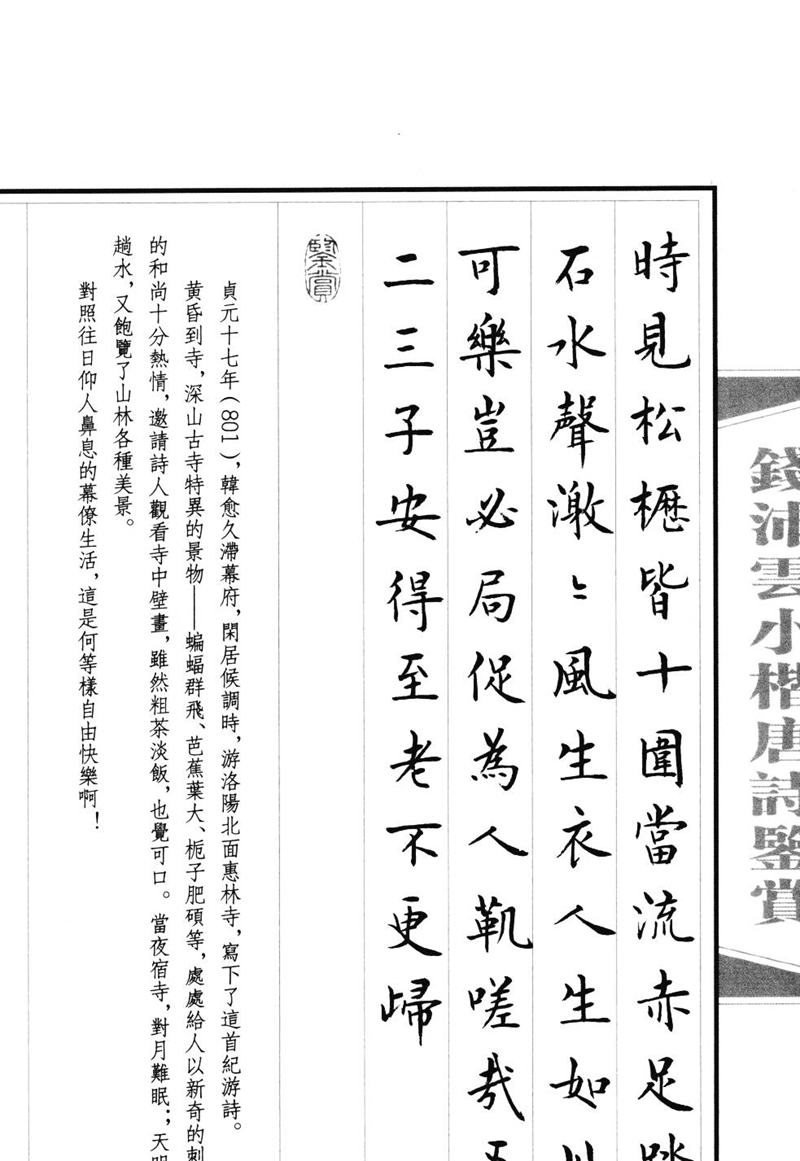 錢沛雲小楷唐詩鑒賞
時見松櫪皆十圍當流赤足踏
石水聲激〻風生衣人生如
可樂豈必局促為人鞿嗟哉
二三子安得至老不更歸
鑒賞
貞元十七年(801)，韓愈久滯幕府，閑居候調時，游洛陽北面惠林寺，寫下了這首紀游詩。
黄昏到寺，深山古寺特異的景物——蝙蝠群飛、芭蕉葉大、栀子肥碩等，處處給人以新奇的刺
的和尚十分熱情，邀請詩人觀看寺中壁畫，雖然粗茶淡飯，也覺可口。當夜宿寺，對月難眠；天明
趟水，又飽覽了山林各種美景。
對照往日仰人鼻息的幕僚生活，這是何等樣自由快樂啊！